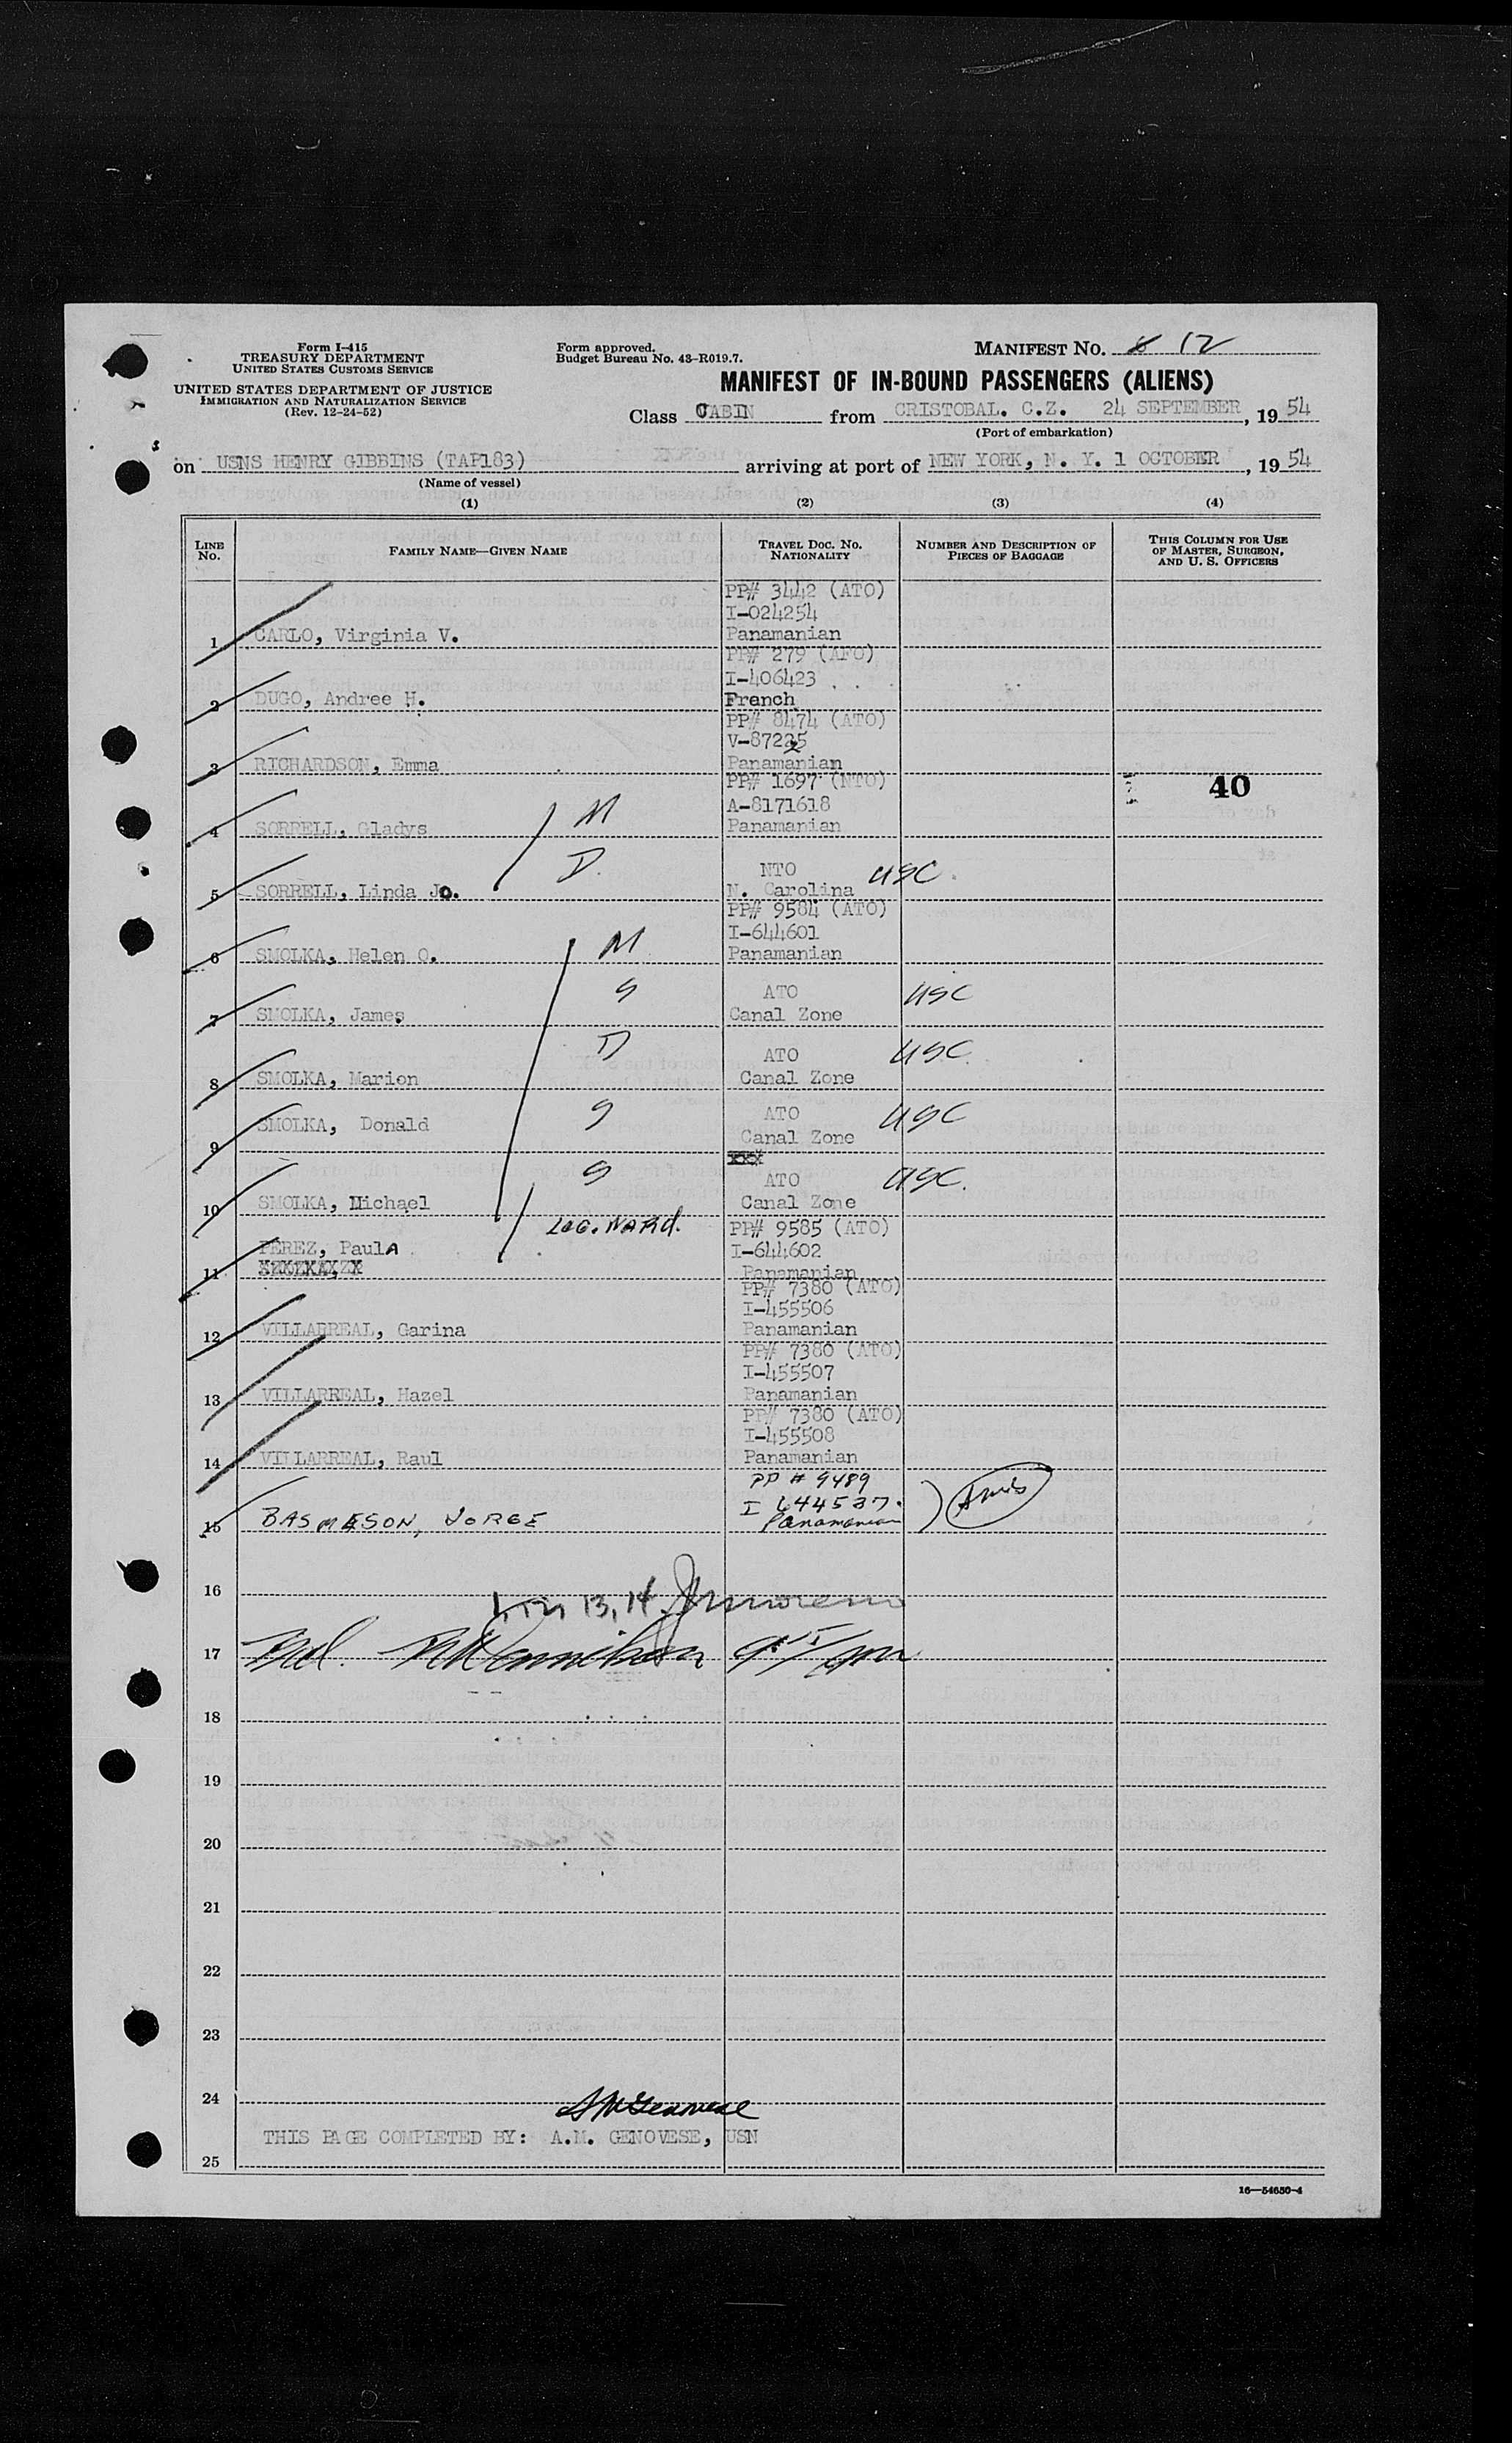 Form I-415
TREASURY DEPARTMENT
UNITED STATES CUSTOMS SERVICE
UNITED STATES DEPARTMENT OF JUSTICE
IMMIGRATION AND NATURALIZATION SERVICE
(Rev. 12-24-52)
Form approved.
Budget Bureau No. 43-R019.7.
MANIFEST No. 12
MANIFEST OF IN-BOUND PASSENGERS (ALIENS)
Class CABIN from CRISTOBAL. C.Z. 24 SEPTEMBER, 1954
(Port of embarkation)
on USNS HENRY GIBBINS (TAP183) arriving at port of NEW YORK, N. Y. 1 OCTOBER, 1954
(Name of vessel)
(1) (2) (3) (4)
LINE No. FAMILY NAME—GIVEN NAME TRAVEL DOC. NO. NATIONALITY NUMBER AND DESCRIPTION OF PIECES OF BAGGAGE THIS COLUMN FOR USE OF MASTER, SURGEON, AND U. S. OFFICERS
PP# 3442 (ATO)
I-024254
1 CARLO, Virginia V. Panamanian
PP# 279 (AFO)
I-406423
2 DUGO, Andree H. French
PP# 8474 (ATO)
V-87225
3 RICHARDSON, Emma Panamanian
PP# 1697 (NTO)
40
A-8171618
4 SORRELL, Gladys M Panamanian
D. NTO USC.
5 SORRELL, Linda Jo. N. Carolina
PP# 9584 (ATO)
I-644601
6 SMOLKA, Helen O. M Panamanian
S ATO USC
7 SMOLKA, James Canal Zone
D ATO USC
8 SMOLKA, Marion Canal Zone
SMOLKA, Donald S ATO USC
9 Canal Zone
xxx
S ATO USC.
10 SMOLKA, Michael Canal Zone
LEG. WARD. PP# 9585 (ATO)
PEREZ, PaulA I-644602
11 Panamanian
PP# 7380 (ATO)
I-455506
12 VILLARREAL, Carina Panamanian
PP# 7380 (ATO)
I-455507
13 VILLARREAL, Hazel Panamanian
PP# 7380 (ATO)
I-455508
14 VILLARREAL, Raul Panamanian
PP # 9489
I 644537.
15 BASMESON, JORGE Panamanian
16
13, 14
17
18
19
20
21
22
23
24
A M Genovese
THIS PAGE COMPLETED BY: A.M. GENOVESE, USN
25
16—54650-4